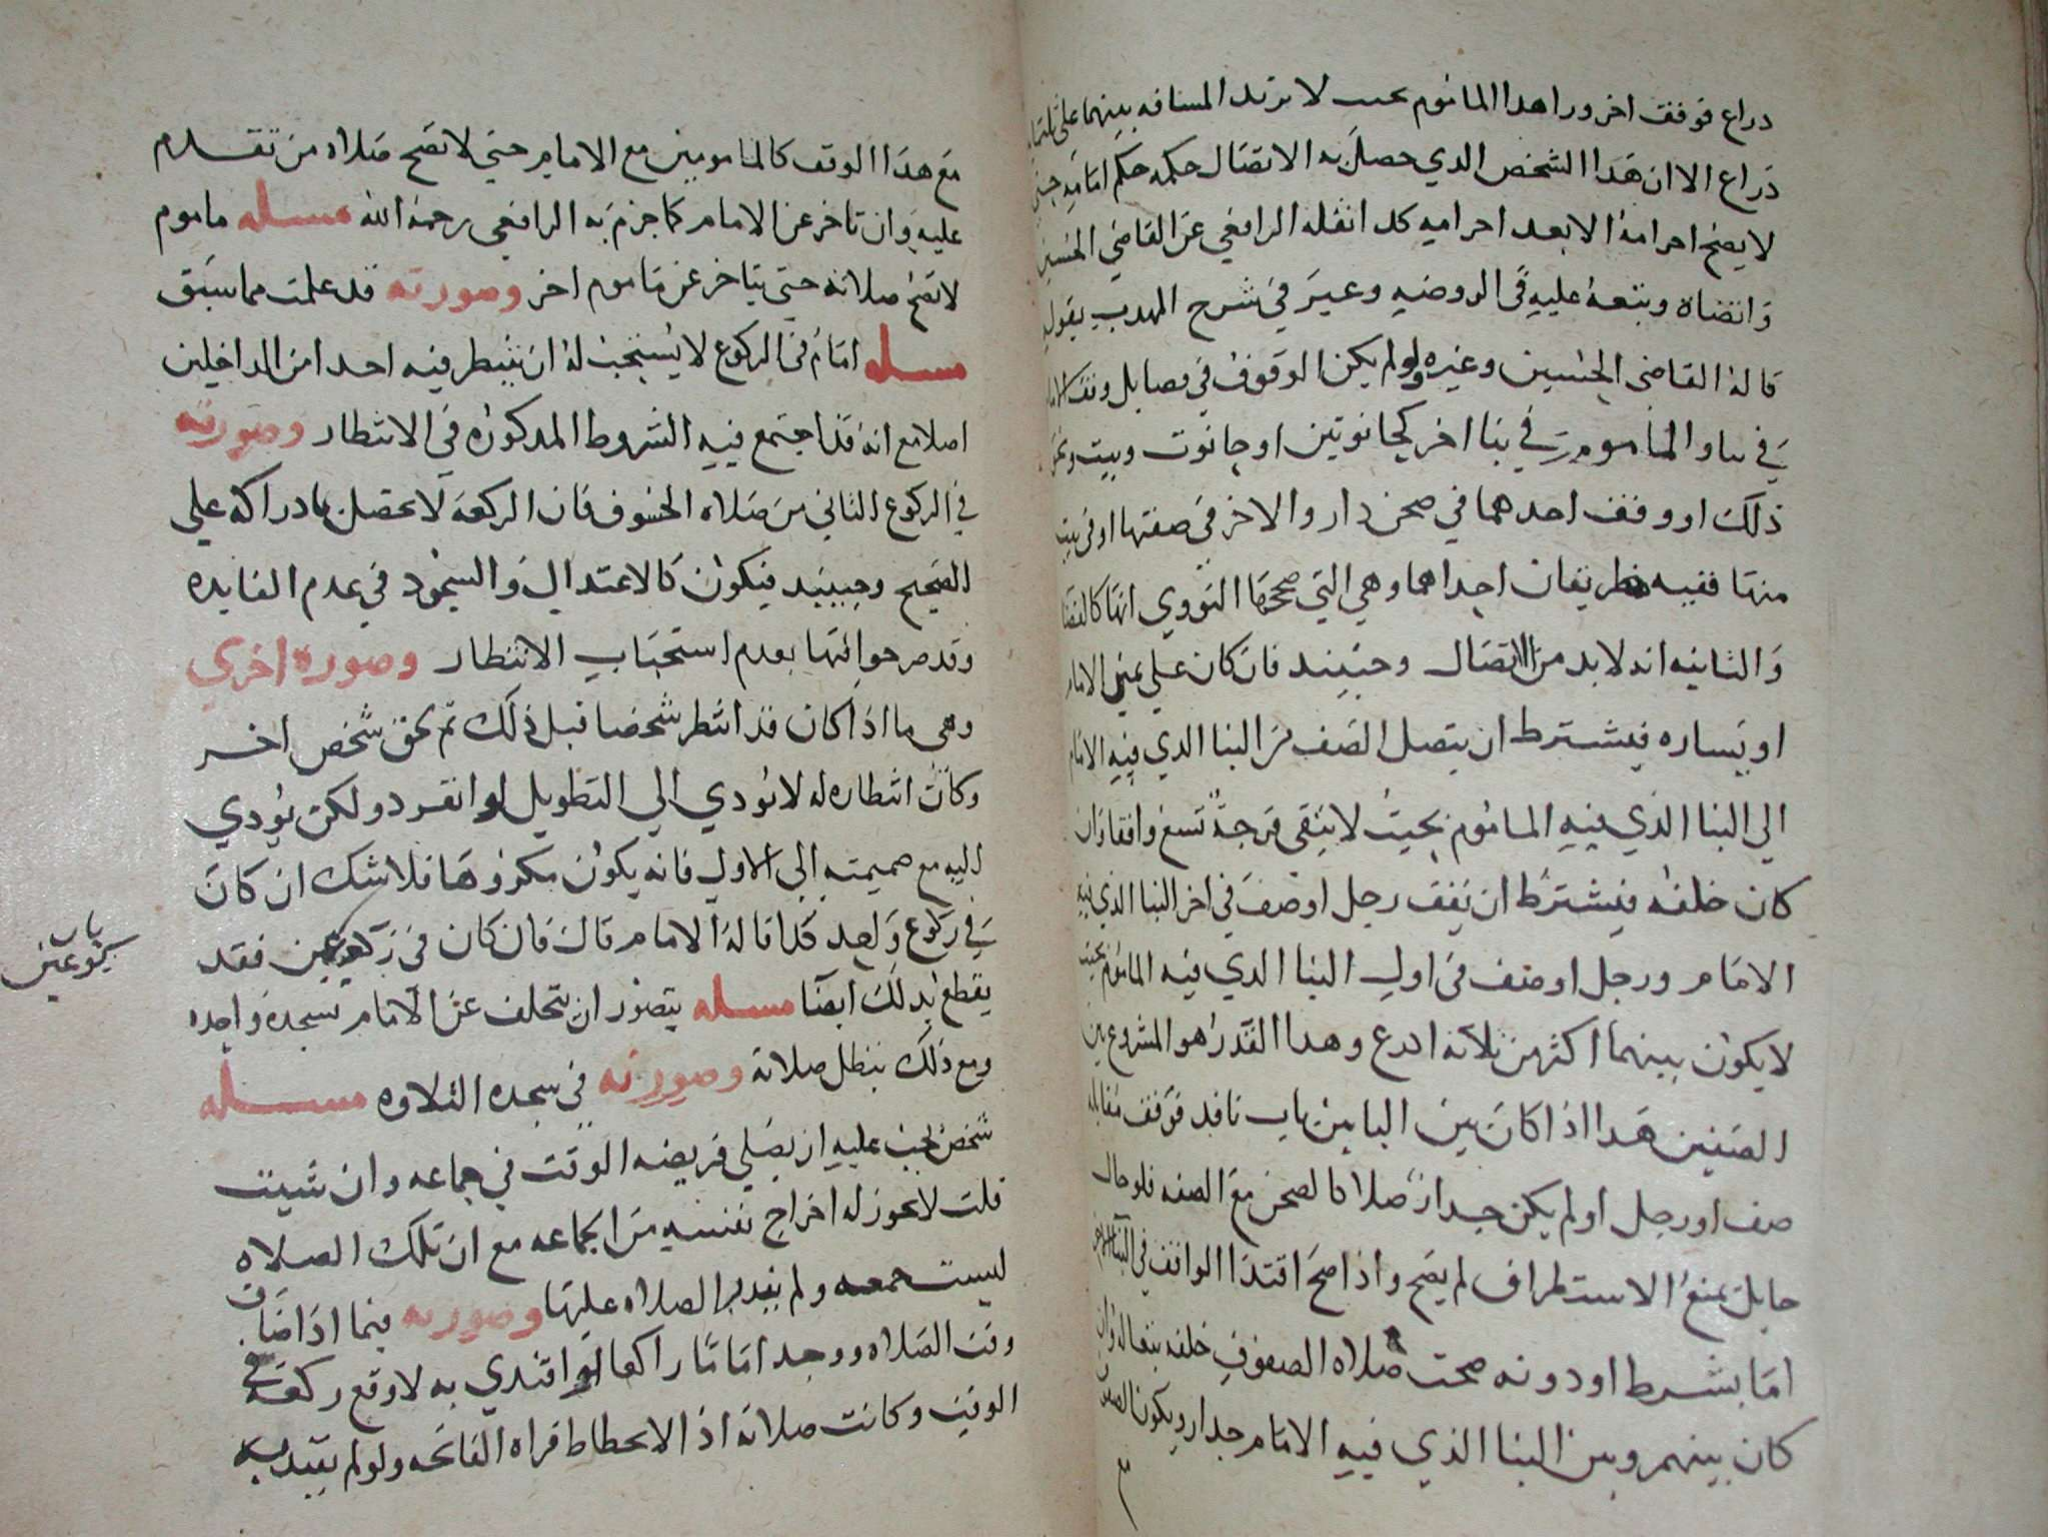 دراع فوقف اخر ورا هدا الماموم بحيث لا تزيد المسافه بينهما على
ذراع الا ان هدا الشخص الدي حصل به الاتصال حكمه حكم امامه حتى
لا يصح احرامه الا بعد احراميه كدا نقله الرافعي عن القاضي الحسين
وتبعه عليه في الروضه وعبر في شرح المهدب بقوله
قاله القاضى الحسين وغيره ولو لم يكن الوقوف في فضا بل وقف الامام
في بنا والماموم في بنا اخر كحانوتين او حانوت وبيت ونحو
ذلك او وقف احدهما في صحن دار والاخر في صفتها او في بيت
منها ففيه طريقان احداهما وهي التي صححها النووي انها كالفضا
والثانيه انه لا بد من الاتصال وحينيد فان كان علي يمين الامام
او يساره فيشترط ان يتصل الصف من البنا الدي فيه الامام
الي البنا الذي فيه الماموم بحيث لا يبقى فرجة تسع واقفا وان
كان خلفه فيشترط ان يقف رجل او صف في اخر البنا الذي فيه
الامام ورجل او صف في اول البنا الدي فيه الماموم بحيث
لا يكون بينهما اكثر من ثلاثه ادرع وهدا القدر هو المشروع بين
الصفين هدا اذا كان بين البابين باب نافد فوقف مقابله
صف او رجل او لم يكن جدار اصلا كالصحن مع الصفه فلو حال
حايل يمنع الاستطراق لم يصح واذا صح اقتدا الواقف في البنا الاخر
اما بشرط او دونه صحت صلاه الصفوف خلفه تبعا له وان
كان بينهم وبين البنا الذي فيه الامام جدار ويكون الصف
مع هدا الوقف كالمامومين مع الامام حتى لا تصح صلاه من تقدم
عليه وان تاخر عن الامام كما جزم به الرافعي رحمه الله مسله ماموم
لا تصح صلاته حتي يتاخر عن ماموم اخر وصورته قد علمت مما سبق
مسله امام في الركوع لا يستحب له ان ينتظر فيه احدا من الداخلين
اصلا مع انه قد اجتمع فيه الشروط المدكوره في الانتظار وصورته
في الركوع الثاني من صلاه الخسوف فان الركعه لا تحصل بادراكه علي
الصحيح وحينيد فيكون كالاعتدال والسجود في عدم الفايده
وقد صرحوا فيها بعدم استحباب الانتظار وصوره اخري
وهى ما اذا كان قد انتظر شخصا قبل ذلك ثم لحق شخص اخر
وكان انتظاره له لا يودي الي التطويل لو انفرد ولكن يودي
اليه مع ضميمته الي الاول فانه يكون مكروها فلا شك ان كان
في ركوع واحد كدا قاله الامام قال فان كان في ركوعين فقد
يقطع بدلك ايضا مسله يتصور ان يتخلف عن الامام بسجده واحده
ومع ذلك تبطل صلاته وصورته في سجده التلاوه مسله
شخص يجب عليه ان يصلي فريضه الوقت في جماعه وان شيت
قلت لا يجوز له اخراج نفسه من الجماعه مع ان تلك الصلاه
ليست جمعه ولم يندر الصلاه عليها وصورته فيما اذا ضاق
وقت الصلاه ووجد اماما راكعا لو اقتدي به لاوقع ركعه في
الوقت وكانت صلاته اذ الانحطاط قراه الفاتحه ولو لم يقتد به
باب
ركوعين